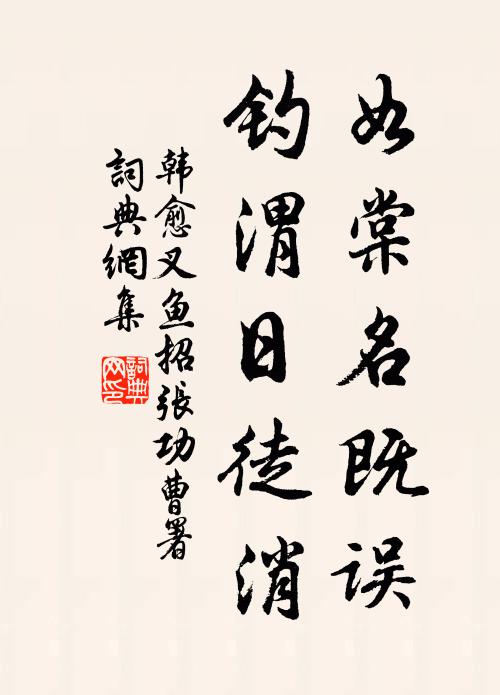 如棠名既误
钓渭日徒消
韩愈叉鱼招張功曹署
詞典網集
詞典网印